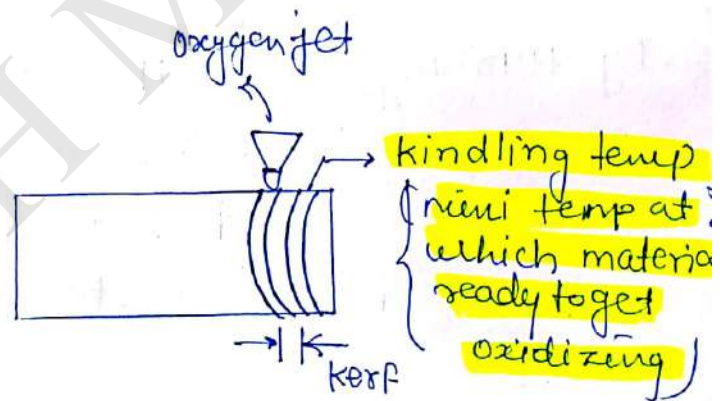 oxygen jet
kindling temp
( mini temp at
which materia
ready to get
oxidizing )
kerf
H M